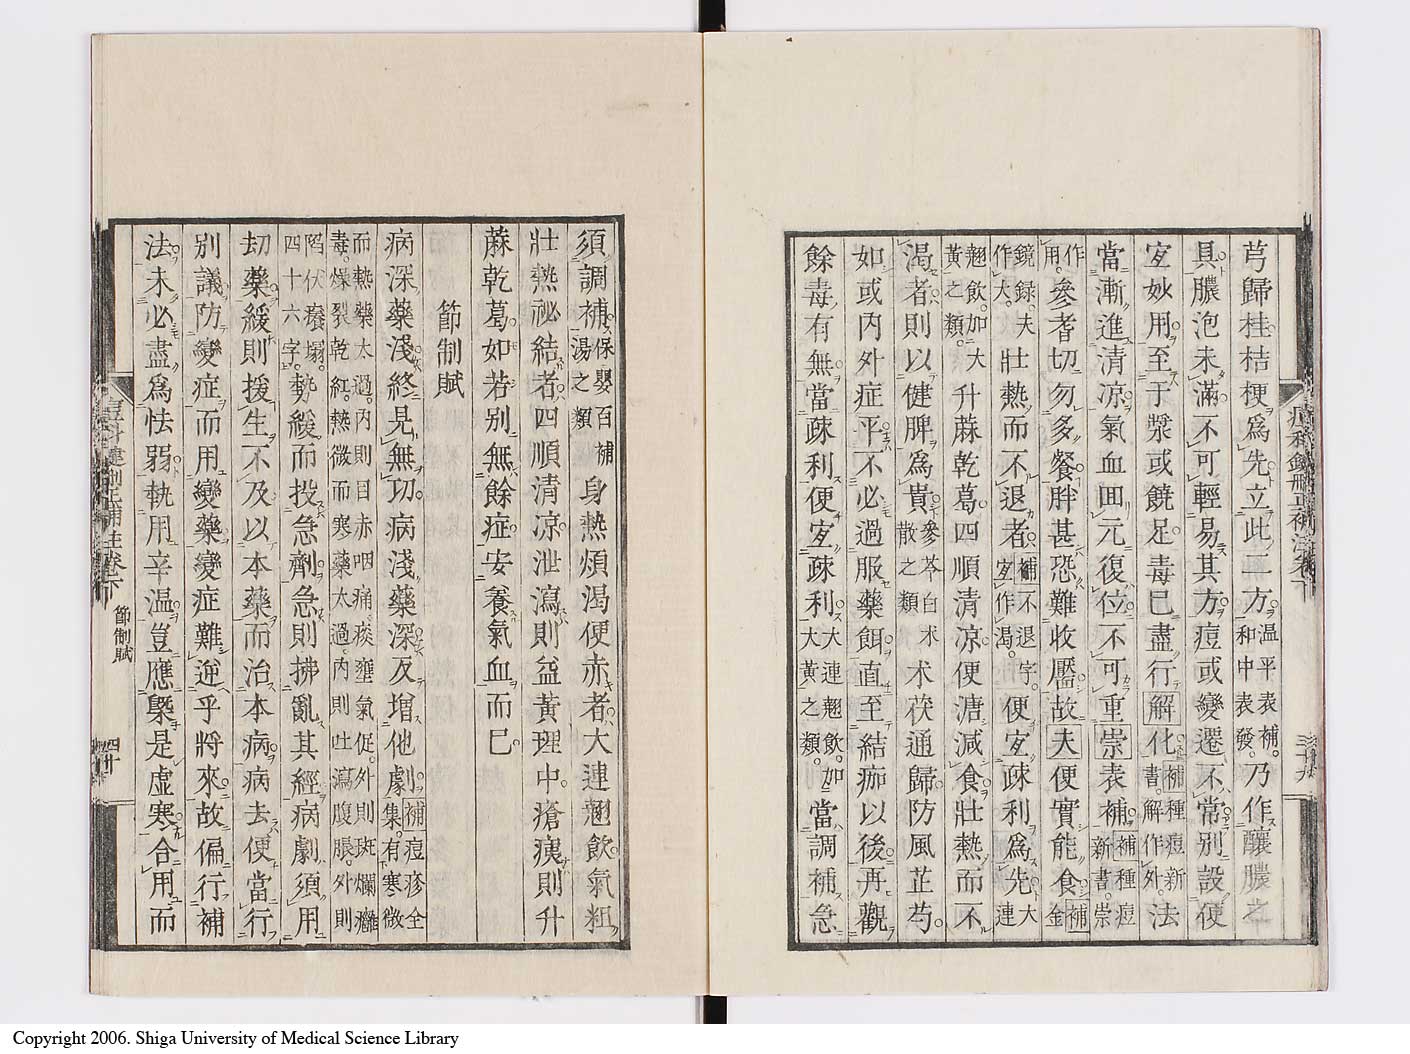 芎歸桂桔梗爲先立此二方温平表補。和中表發。乃作釀膿之
具膿泡未滿不可輕易其方痘或變遷不常別設便
宐妙用至于漿或饒足毒已盡行解化補種痘新書解作外。法
當漸進清凉氣血囬元復位不可重崇表補補種痘新書崇
作用。參耆切勿多餐胖甚恐難收靨故夫便實能食補金
鏡録夫作大。壯熱而不退者補不退字。宐作渴。便宐疎利爲先大連
翹飲。加大黃之類。升蔴乾葛四順清凉便溏減食壯熱而不
渴者則以健脾爲貴參苓白朮散之類朮茯通歸防風芷芍。
如或內外症平不必過服藥餌直至結痂以後再觀
餘毒有無當疎利便宐疎利大連翹飲。加大黃之類。當調補急
痘科鍵刪正補注卷下
三十九
須調補保嬰百補湯之類身熱煩渴便赤者大連翹飲氣粗
壯熱祕結者四順清凉泄瀉則益黃理中瘡痍則升
蔴乾葛如若別無餘症安養氣血而已
節制賦
病深藥淺終見無功病淺藥深反增他劇補痘疹全集。有寒微
而熱藥太過。內則目赤咽痛痰壅氣促。外則斑爛癰
毒。燥裂乾紅。熱微而寒藥太過。內則吐瀉腹脹。外則
陷伏癈塌。四十六字。勢緩而投急劑急則拂亂其經病劇須用
刧藥緩則援生不及以本藥而治本病病去便當行
別議防變症而用變藥變症難逆乎將來故偏行補
法未必盡爲怯弱執用辛温豈應槩是虛寒合用而
痘科鍵刪正補注卷下
節制賦
四十
Copyright 2006. Shiga University of Medical Science Library